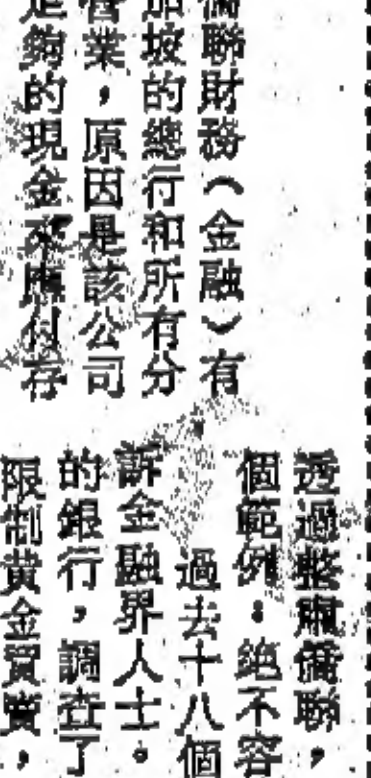 僑聯財務（金融）有
加坡的總行和所有分
營業，原因是該公司
足夠的現金來應付存
透過整肅僑聯，
個範例。絕不容
過去十八個
訴金融界人士。
的銀行，調查了
限制黃金買賣，